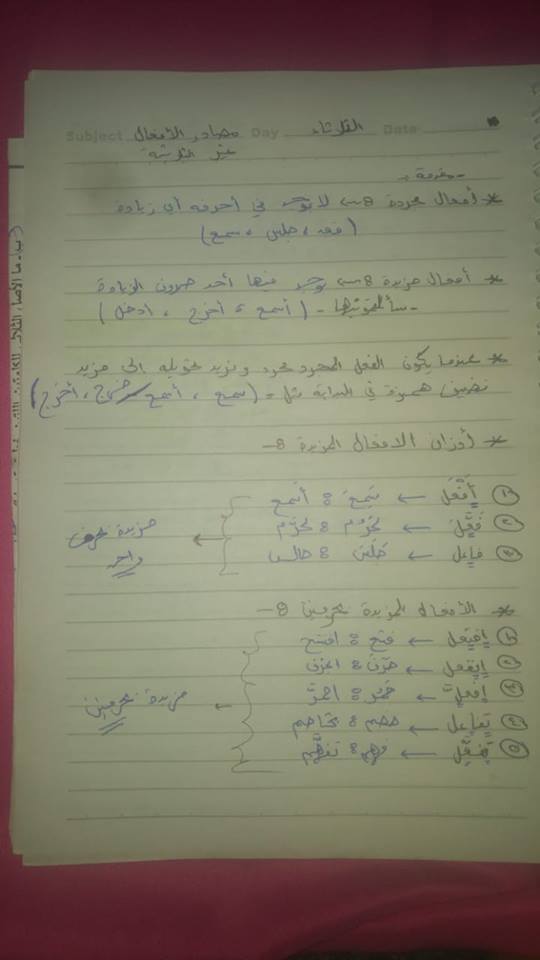 Subject مصادر الأفعال Day الثلاثاء Date
غير الثلاثية
مقدمة :-
* أفعال مجردة :- لا يوجد في أحرفه أي زيادة
( قعد ، جلس ، سمع )
* أفعال مزيدة :- يوجد فيها أحد حروف الزيادة
- سألتمونيها - ( أسمع ، أخرج ، ادخل )
* عندما يكون الفعل مجرد ونريد تحويله إلى مزيد
نضيف همزة في البداية مثل - ( سمع ، أسمع / خرج ، أخرج )
* أوزان الافعال المزيدة :-
① أَفْعَل ← سَمِعَ : أسمع
② فَعَّلَ ←
③ فاعل ← جَلَسَ : جالس
مزيدة بحرف
واحد
* الأفعال المزيدة بحرفين :-
① إفتعل ← فتح : افتتح
② إنفعل ←
③ إفعلّ ← احمرّ
④ تفاعل ← خصم : تخاصم
⑤ تفعّل ← فهم : تفهّم
مزيدة بحرفين